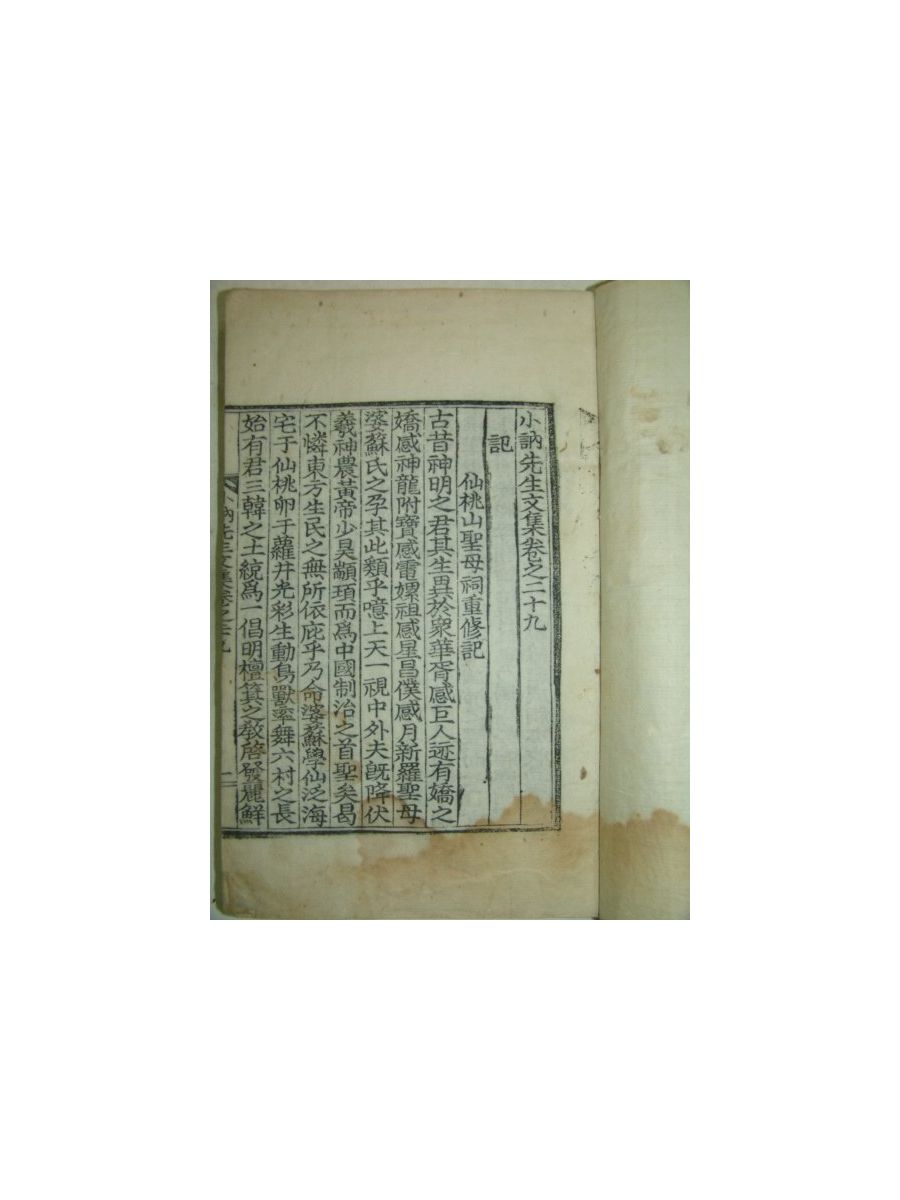 小訥先生文集卷之二十九
記
仙桃山聖母祠重修記
古昔神明之君其生異於衆華胥感巨人迹有嬌之
嬌感神龍附寶感電嫘祖感星昌僕感月新羅聖母
婆蘇氏之孕其此類乎噫上天一視中外夫旣降伏
羲神農黃帝少昊顓頊而爲中國制治之首聖矣曷
不憐東方生民之無所依庇乎乃命婆蘇學仙泛海
宅于仙桃卵于蘿井光彩生動鳥獸率舞六村之長
始有君三韓之土統爲一倡明檀箕之敎啓發麗鮮
小訥先生文集卷之二十九 一